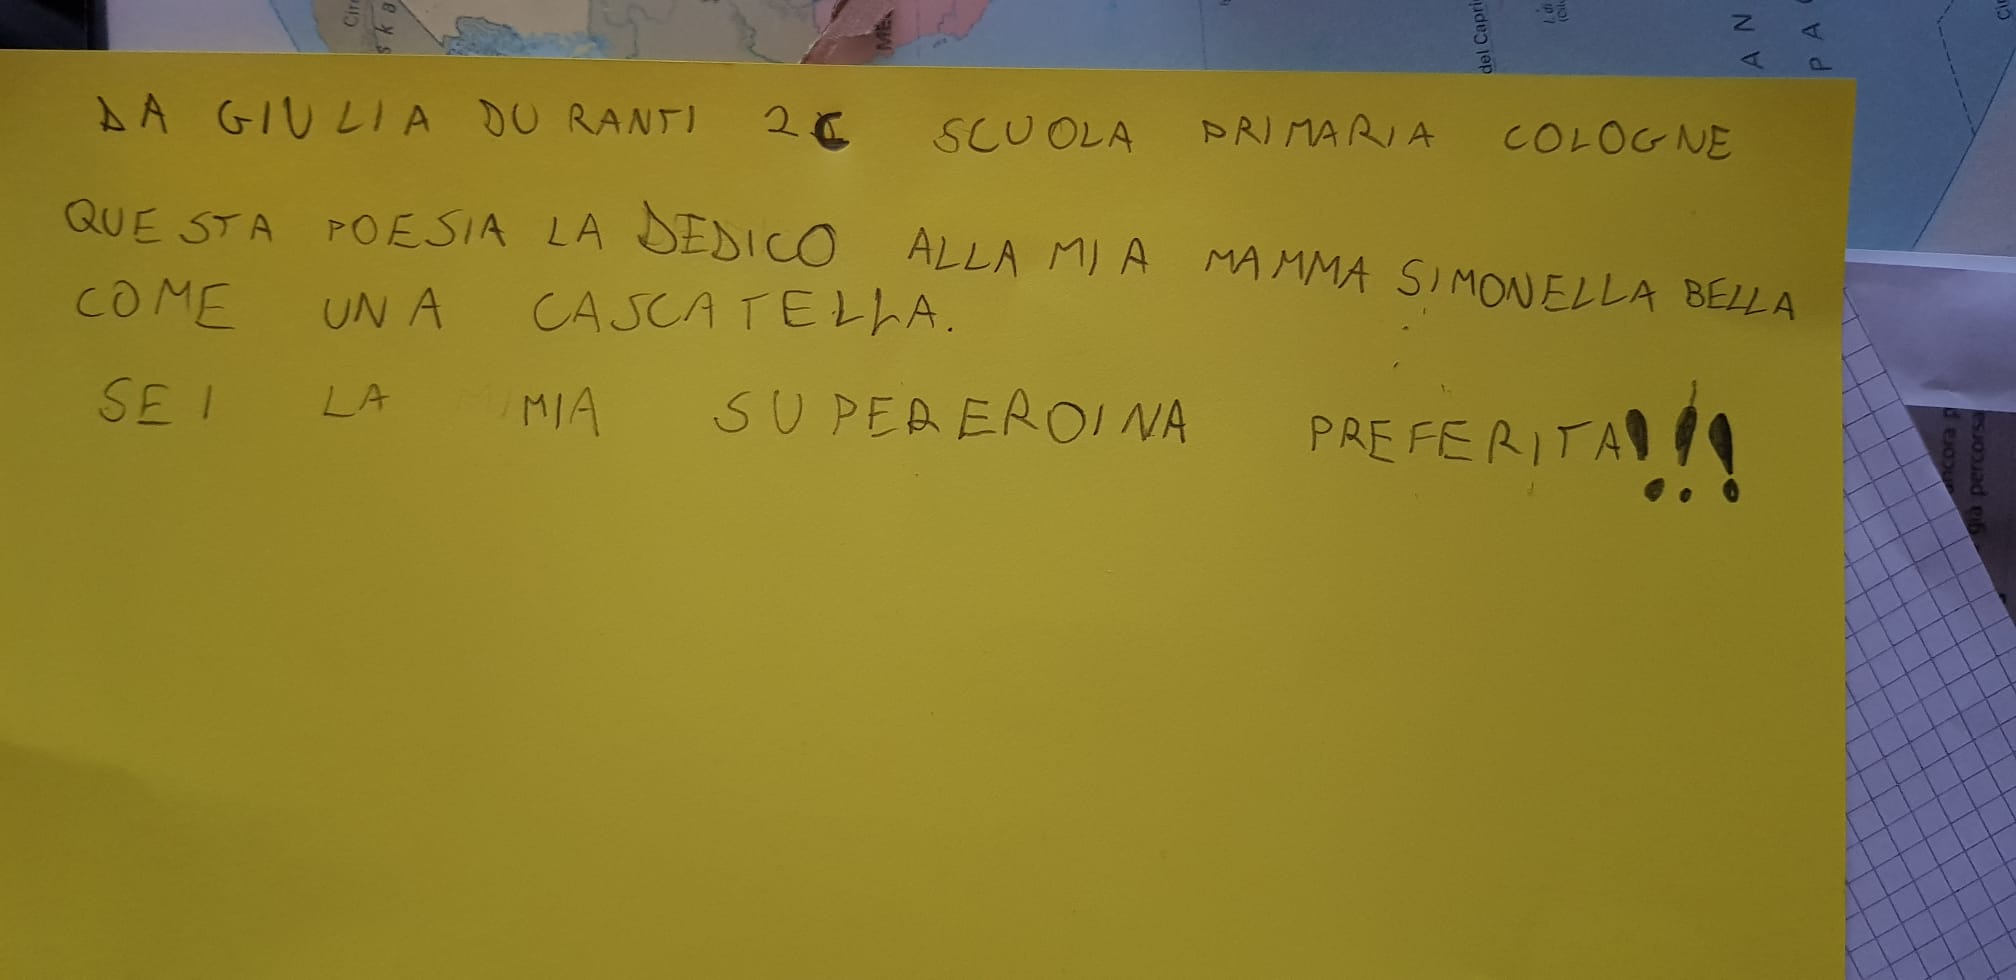 ME
del Capri
A N
P A
DA GIULIA DURANTI 2C SCUOLA PRIMARIA COLOGNE
QUESTA POESIA LA DEDICO ALLA MIA MAMMA SIMONELLA BELLA
COME UNA CASCATELLA.
SEI LA MIA SUPEREROINA PREFERITA!!!
ancora p
già percorsa